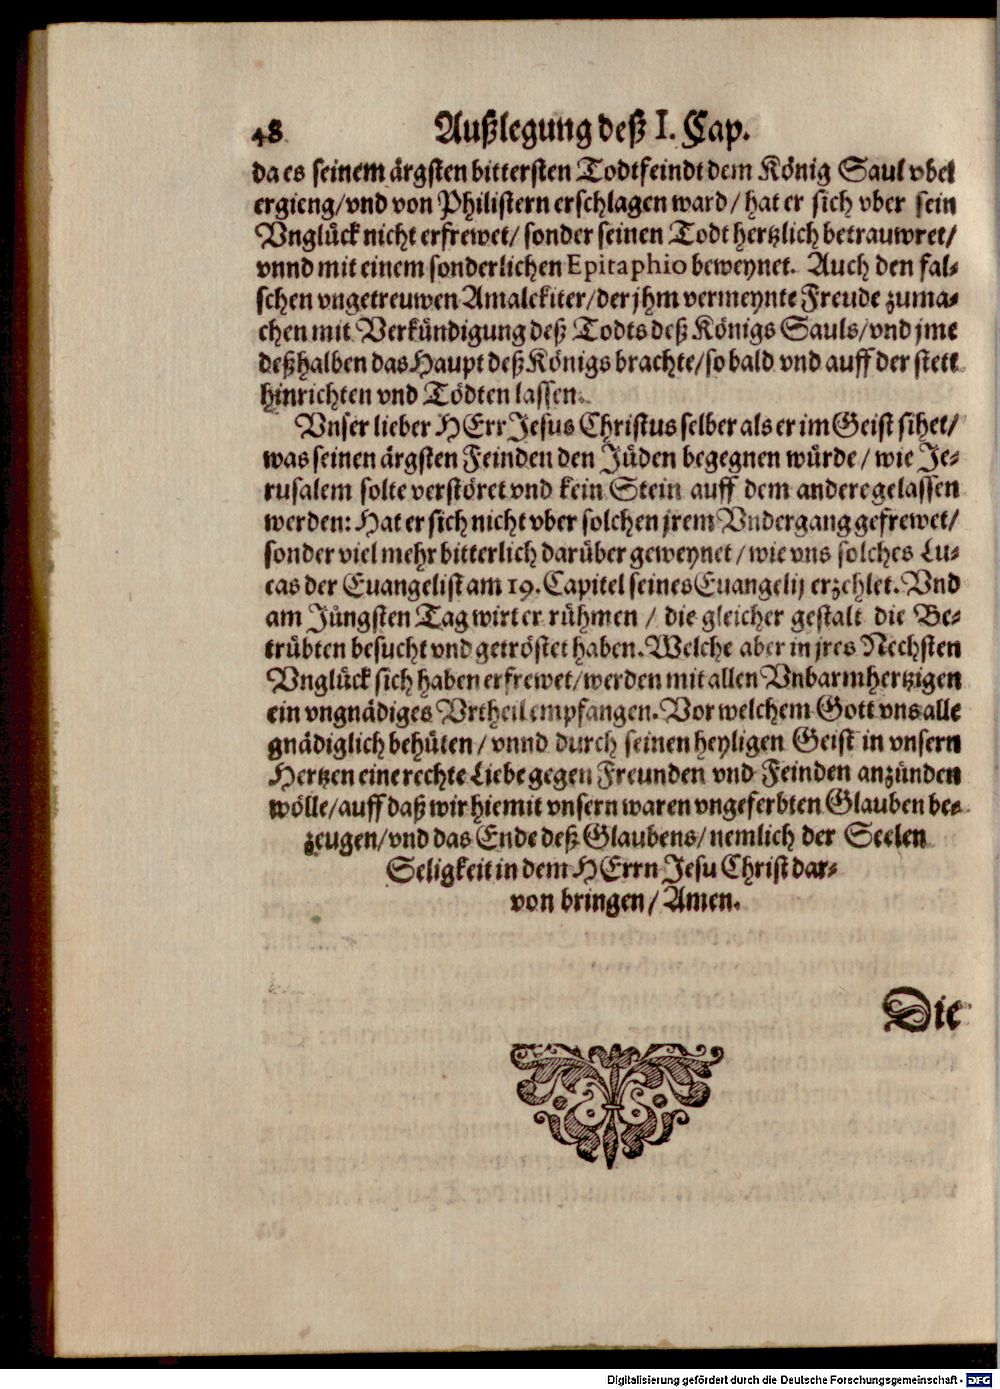 48 Außlegung deß I. Cap.
da es seinem ärgsten bittersten Todtfeindt dem König Saul vbel
ergieng/vnd von Philistern erschlagen ward/ hat er sich vber sein
Vnglück nicht erfrewet/ sonder seinen Todt hertzlich betrauwret/
vnnd mit einem sonderlichen Epitaphio beweynet. Auch den fal-
schen vngetreuwen Amalekiter/der jhm vermeynte Freude zuma-
chen mit Verkündigung deß Todts deß Königs Sauls/vnd jme
deßhalben das Haupt deß Königs brachte/so bald vnd auff der stett
hinrichten vnd Tödten lassen.
Vnser lieber HErr Jesus Christus selber als er im Geist sihet/
was seinen ärgsten Feinden den Jüden begegnen würde/ wie Je-
rusalem solte verstöret vnd kein Stein auff dem andere gelassen
werden: Hat er sich nicht vber solchen jrem Vndergang gefrewet/
sonder viel mehr bitterlich darüber geweynet/ wie vns solches Lu-
cas der Euangelist am 19. Capitel seines Euangelij erzehlet. Vnd
am Jüngsten Tag wirt er rühmen / die gleicher gestalt die Be-
trübten besucht vnd getröstet haben. Welche aber in jres Nechsten
Vnglück sich haben erfrewet/werden mit allen Vnbarmhertzigen
ein vngnädiges Vrtheil empfangen. Vor welchem Gott vns alle
gnädiglich behüten/ vnnd durch seinen heyligen Geist in vnsern
Hertzen eine rechte Liebe gegen Freunden vnd Feinden anzünden
wölle/auff daß wir hiemit vnsern waren vngeferbten Glauben be-
zeugen/vnd das Ende deß Glaubens/ nemlich der Seelen
Seligkeit in dem HErrn Jesu Christ dar-
von bringen/ Amen.
Die
Digitalisierung gefördert durch die Deutsche Forschungsgemeinschaft - DFG